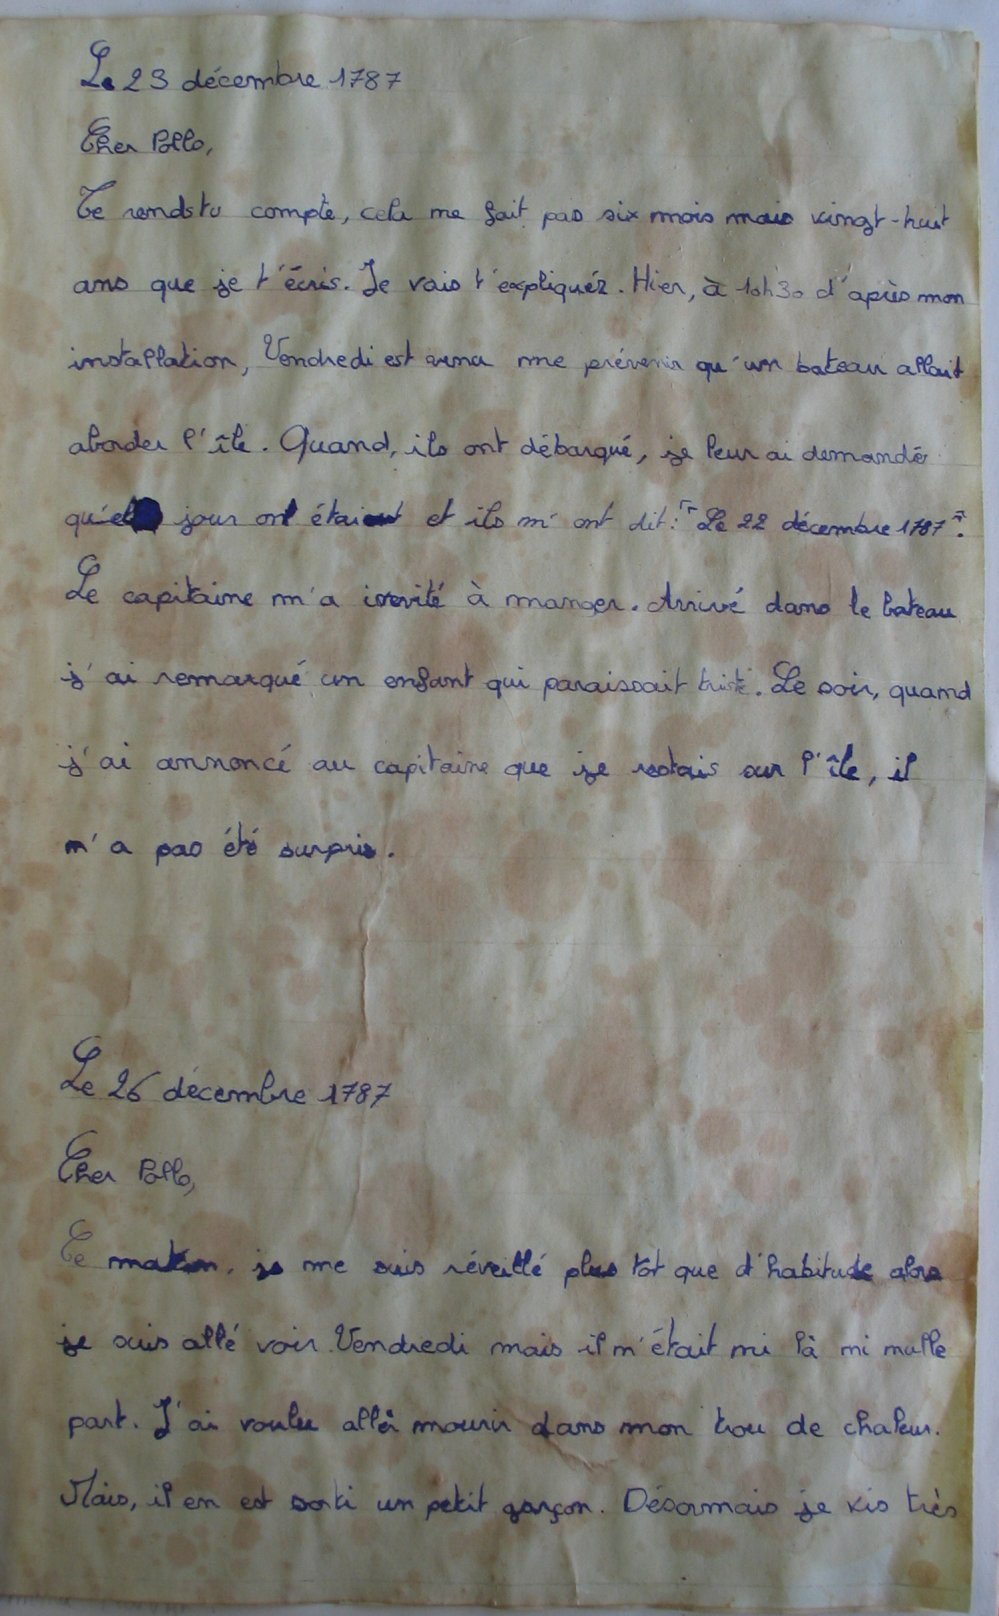 Le 23 décembre 1787
Cher Pollo,
Te rendstu compte, cela me fait pas six mois mais vingt-huit
ans que je t'écris. Je vais t'expliquér. Hier, à 10h30 d'après mon
installation, Vendredi est venu me prévenir qu'un bateau allait
aborder l'île. Quand, ils ont débarqué, je leur ai demandé
qu'el jour ont étaient et ils m'ont dit: "Le 22 décembre 1787".
Le capitaine m'a invité à manger. Arrivé dans le bateau
j'ai remarqué un enfant qui paraissait triste. Le soir, quand
j'ai annoncé au capitaine que je restais sur l'île, il
n'a pas été surpris.
Le 26 décembre 1787
Cher Pollo,
Ce matin, je me suis réveillé plus tôt que d'habitude alors
je suis allé voir Vendredi mais il n'était ni là ni nulle
part. J'ai voulu aller mourir dans mon trou de chaleur.
Mais, il en est sorti un petit garçon. Désormais je vis très